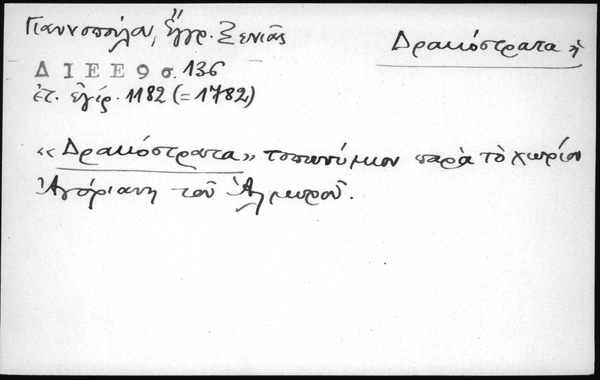 Γιαννοπούλου, Ἔγγρ. Ξενιᾶς
Δρακόστρατα ἡ
ΔΙΕΕ 9 σ. 136
ἐτ. ἐγίρ. 1182 (=1782)
«Δρακόστρατα» τοπωνύμιον παρὰ τὸ χωρίον
Ἀγόριανη τοῦ Ἁλμυροῦ.